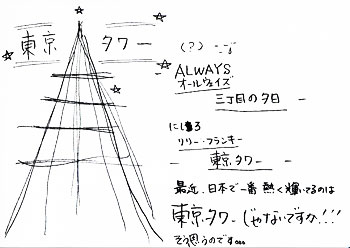 東京タワー
(?)
ALWAYS
オールウェイズ
三丁目の夕日
リリー・フランキー
東京タワー
最近、日本で一番熱く輝いてるのは
東京タワーじゃないですか!!!
そう思うのです。。。